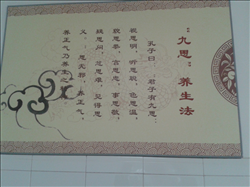 ：九思：养生法
孔子曰：君子有九思，
视思明，听思聪，色思温，
貌思恭，言思忠，事思敬，
疑思问，忿思难，见得思
义。思无邪，养正气，
养正气乃养生之